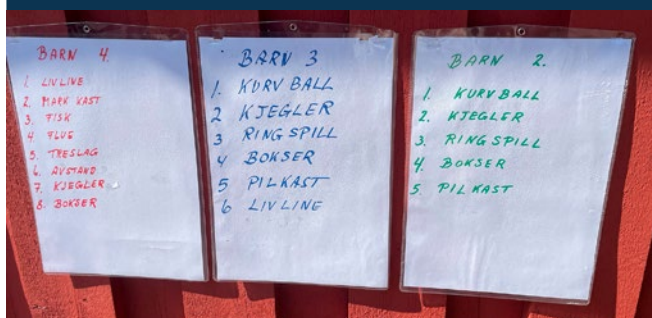 BARN 4.
1. LIVLINE
2. MARK KAST
3. FISK
4. FLUE
5. TRESLAG
6. AVSTAND
7. KJEGLER
8. BOKSER
BARN 3
1. KURV BALL
2 KJEGLER
3 RING SPILL
4 BOKSER
5 PILKAST
6 LIV LINE
BARN 2.
1. KURV BALL
2. KJEGLER
3. RING SPILL
4. BOKSER
5. PIL KAST